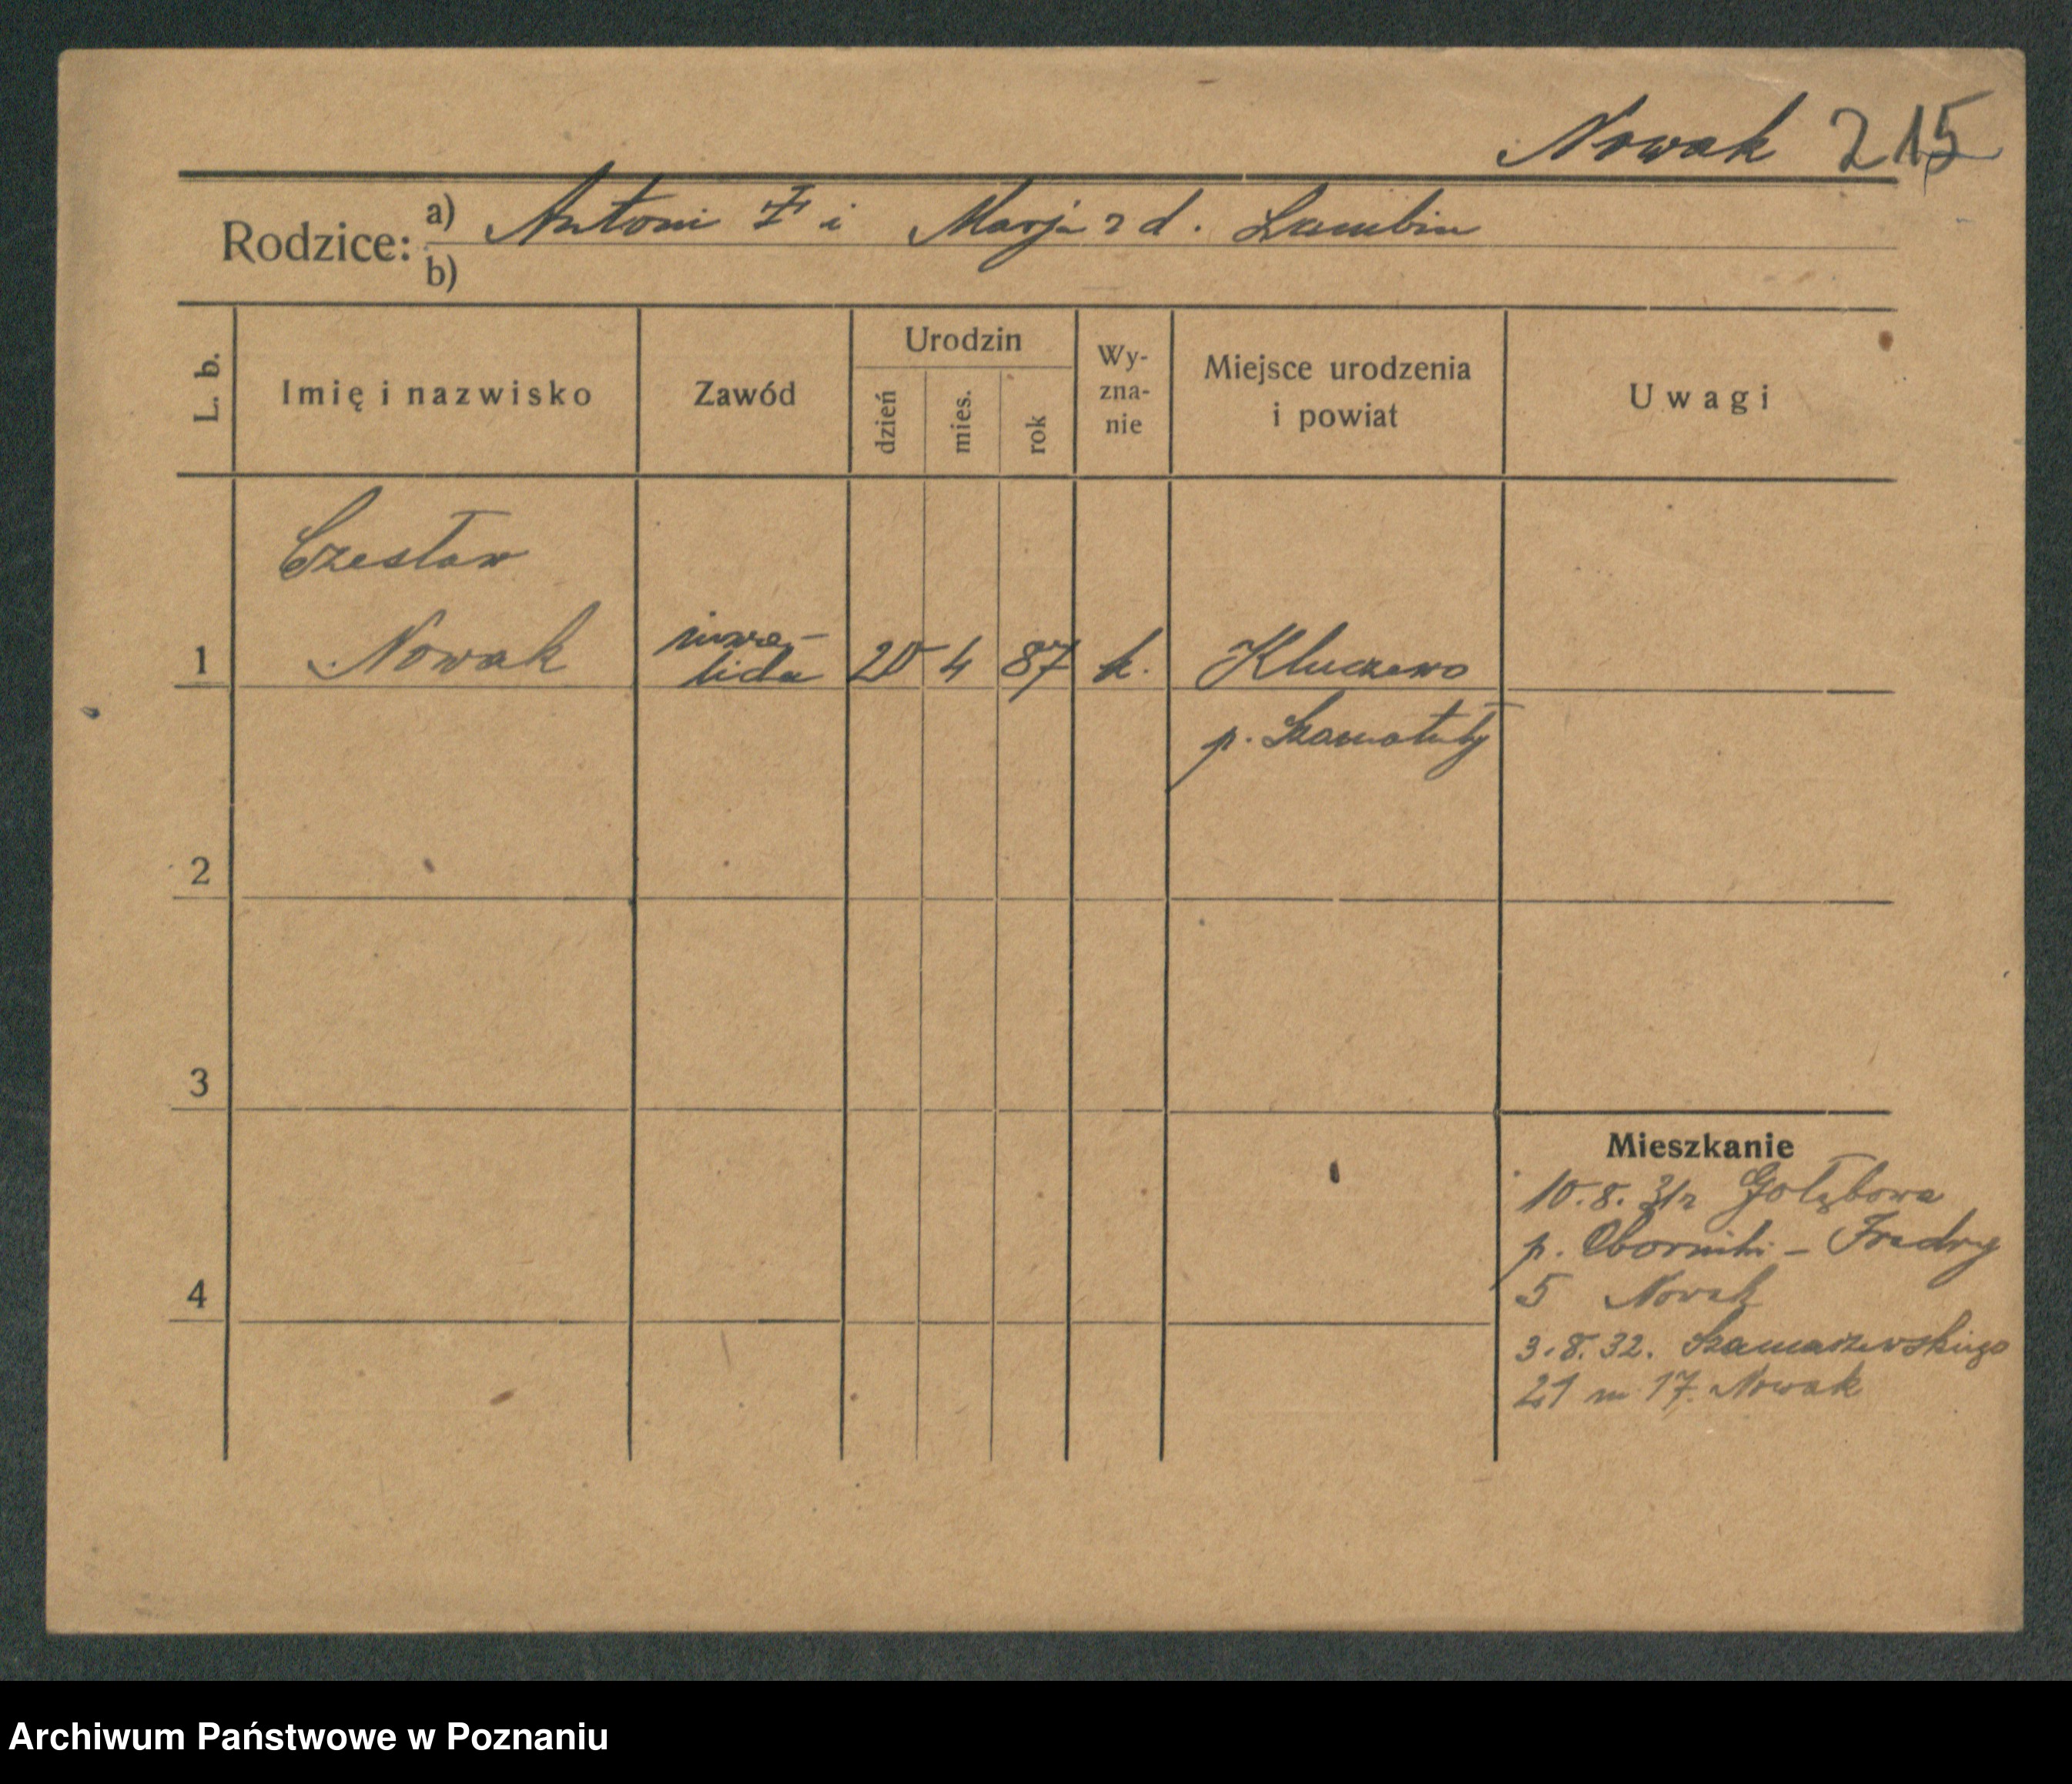 Nowak 215
Rodzice: a) Antoni † i Marja z d. Lambin
b)
L. b.
Imię i nazwisko
Zawód
Urodzin
dzień
mies.
rok
Wy-
zna-
nie
Miejsce urodzenia
i powiat
Uwagi
Czesław
1 Nowak inwa-
lida 20 4 87 k. Kluczewo
p. Szamotuły
2
3
4
Mieszkanie
10.8.31r Gołębowa
p. Oborniki - Fredry
5 Nowak
3.8.32. Szamarzewskiego
21 m 17. Nowak
Archiwum Państwowe w Poznaniu